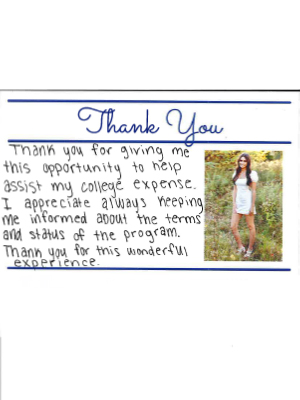 Thank You
Thank you for giving me
this opportunity to help
assist my college expense.
I appreciate always keeping
me informed about the terms
and status of the program.
Thank you for this wonderful
experience.